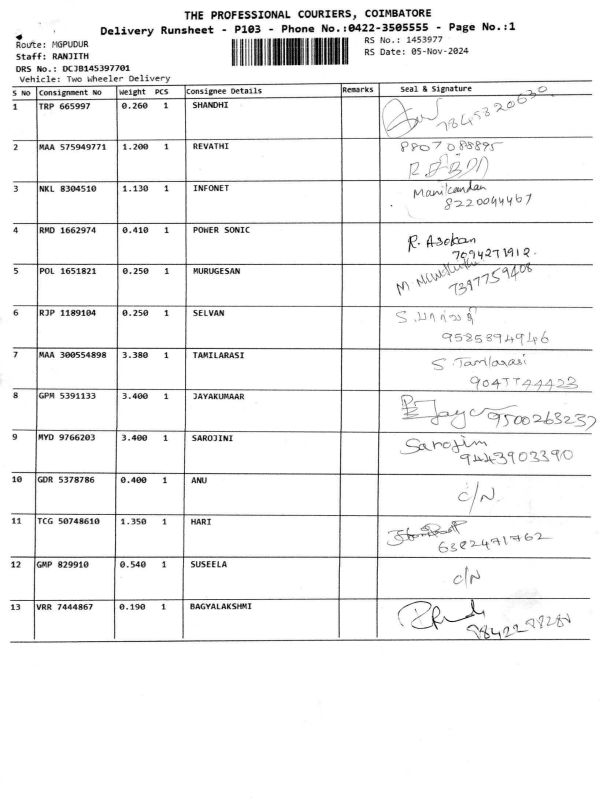 THE PROFESSIONAL COURIERS, COIMBATORE
Delivery Runsheet - P103 - Phone No.:0422-3505555 - Page No.:1
Route: MGPUDUR
RS No.: 1453977
Staff: RANJITH
RS Date: 05-Nov-2024
DRS No.: DCJB145397701
Vehicle: Two Wheeler Delivery
S No Consignment No Weight PCS Consignee Details Remarks Seal & Signature
1 TRP 665997 0.260 1 SHANDHI
7845320630
2 MAA 575949771 1.200 1 REVATHI 8807088895
3 NKL 8304510 1.130 1 INFONET Manikandan
8220044467
4 RMD 1662974 0.410 1 POWER SONIC R. Asokan
7094271912.
5 POL 1651821 0.250 1 MURUGESAN M
7397759408
6 RJP 1189104 0.250 1 SELVAN S.
9585894946
7 MAA 300554898 3.380 1 TAMILARASI S. Tamilarasi
9047744423
8 GPM 5391133 3.400 1 JAYAKUMAAR
9500263237
9 MYD 9766203 3.400 1 SAROJINI Sarojini
9443903390
10 GDR 5378786 0.400 1 ANU C/N
11 TCG 50748610 1.350 1 HARI
6382471762
12 GMP 829910 0.540 1 SUSEELA C/N
13 VRR 7444867 0.190 1 BAGYALAKSHMI